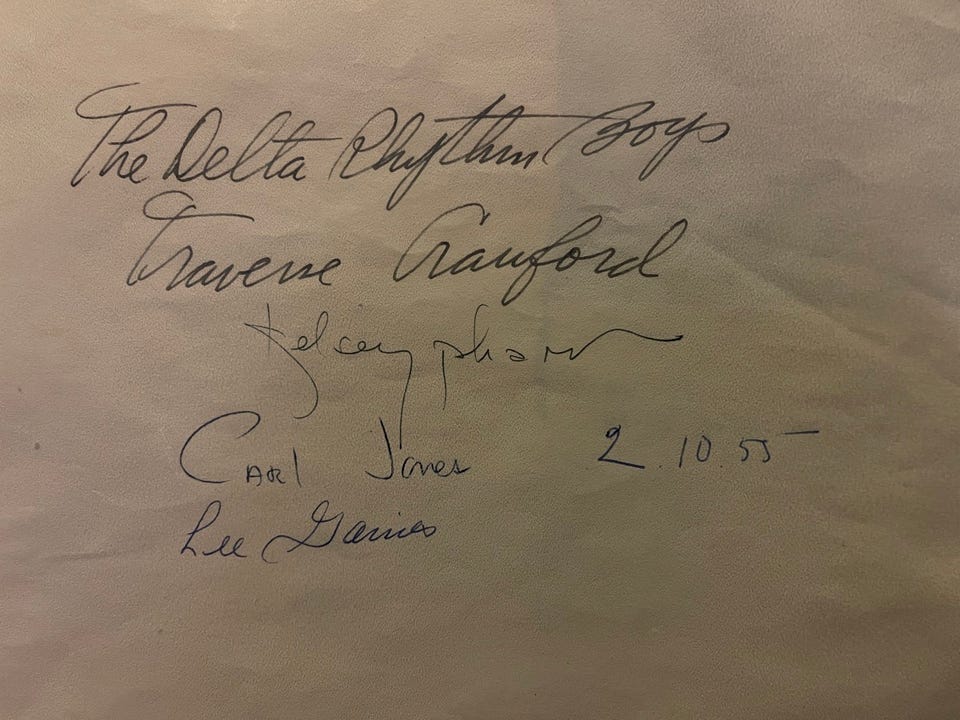 The Delta Rhythm Boys
Traverse Crawford
Kelsey pharr
Carl Jones 2.10.55
Lee Gaines